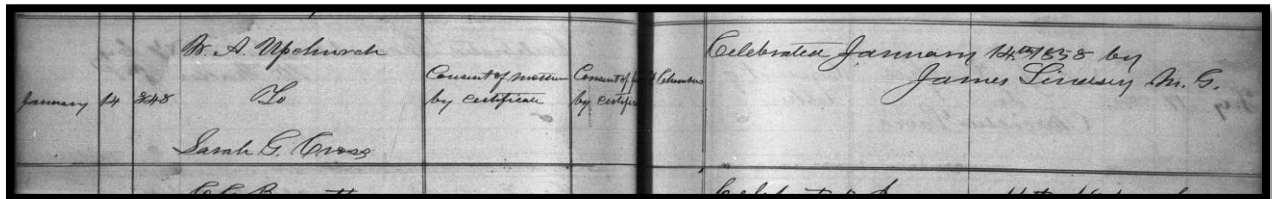 W. A. Upchurch
To
Sarah G. Cross
January 14
Consent of mother
by certificate
Consent of
by certifi
Columbus
Celebrated January 14th 1858 by
James Lindsey M. G.